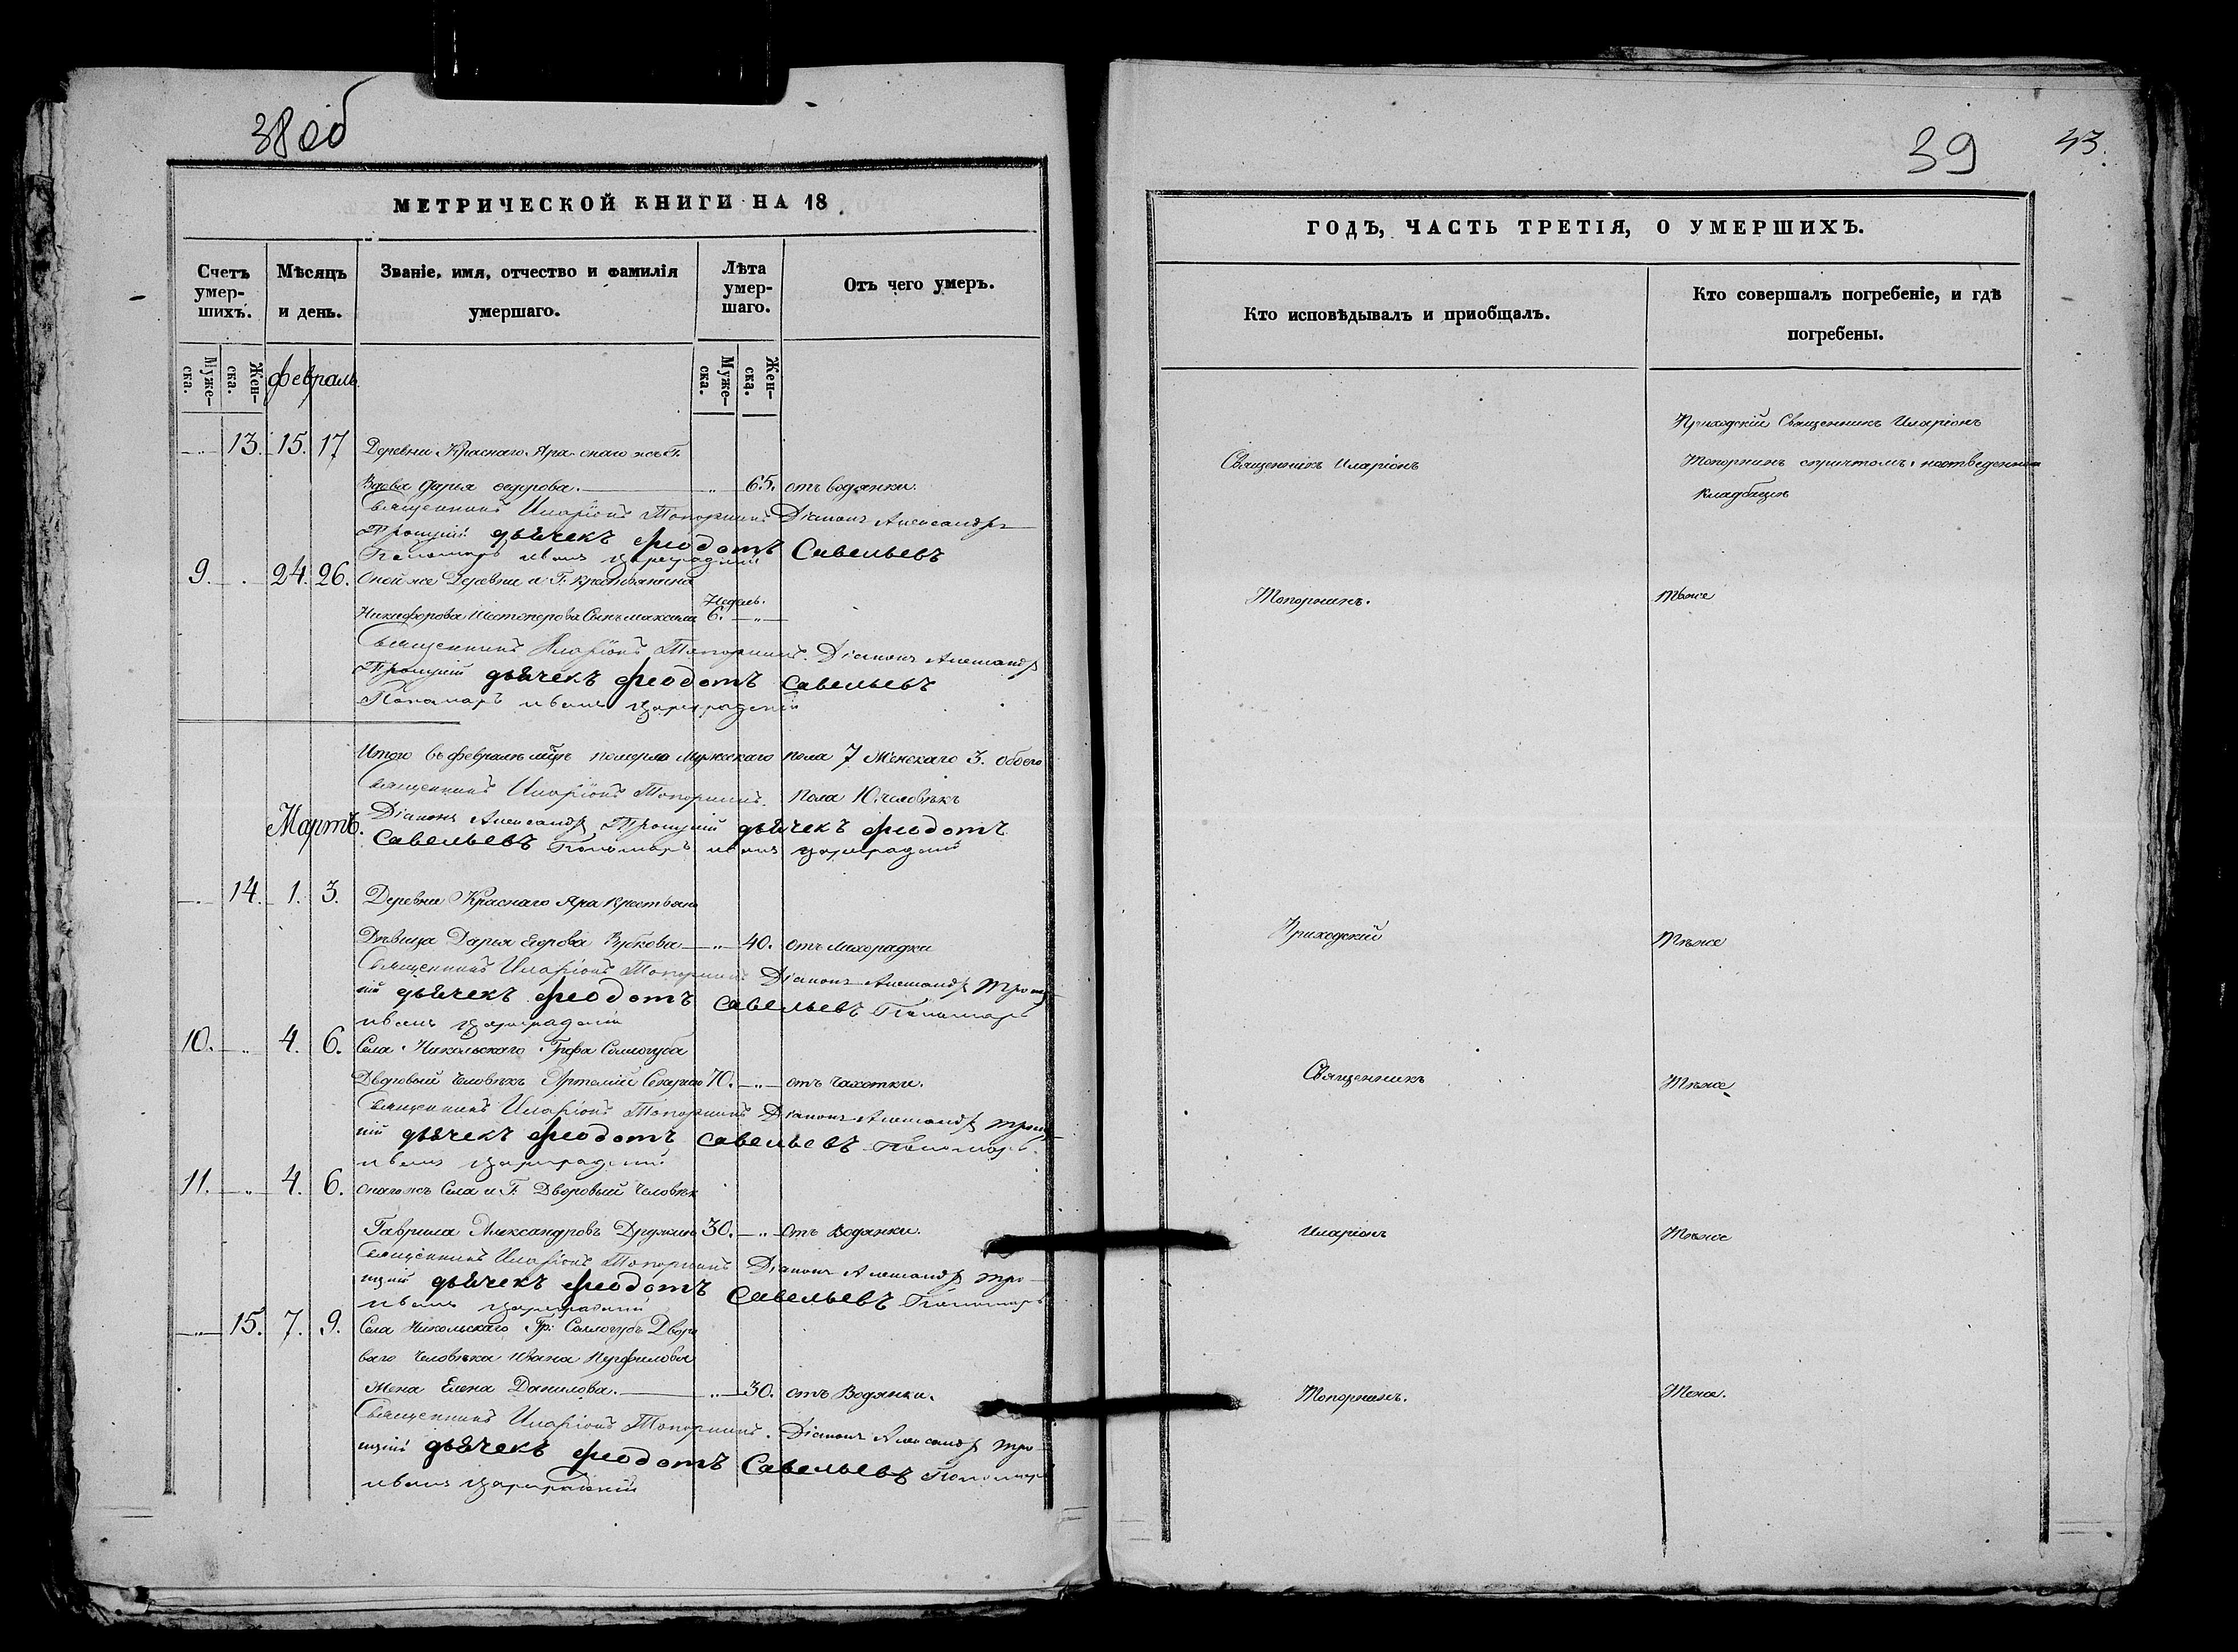 38 об
МЕТРИЧЕСКОЙ КНИГИ НА 18
Счетъ умер-шихъ.
Мѣсяцъ и день.
Званіе, имя, отчество и фамилія умершаго.
Лѣта умер-шаго.
Отъ чего умеръ.
Муже-ска.
Жен-ска.
Февраль.
Муже-ска.
Жен-ска.
13. 15. 17 Деревни Краснаго Яра онаго
Вдова Дарья Федорова. 65. отъ водянки.
Священникъ Иларіонъ Топорнинъ Діаконъ Александръ
Троицкій дьячекъ Феодотъ Савельевъ
Пономарь Иванъ Цареградскій
9. 24. 26. Оной же Деревни и Г. крестьянина
Недель.
Никифорова Шестоперова Сынъ Максимъ 6.
Священникъ Иларіонъ Топорнинъ. Діаконъ Александръ
Троицкій дьячекъ Феодотъ Савельевъ
Пономарь Иванъ Цареградскій
Итого въ февралѣ мцѣ померло Мужскаго пола 7 Женскаго 3. обоего
Священникъ Иларіонъ Топорнинъ. пола 10. человѣкъ
Мартъ.
Діаконъ Александръ Троицкій дьячекъ Феодотъ
Савельевъ Пономарь Иванъ Цареградскій
14. 1. 3. Деревни Краснаго Яра Крестьян
Дѣвица Дарья Егорова Зубкова 40. отъ лихорадки
Священникъ Иларіонъ Топорнинъ Діаконъ Александръ Троиц
кій дьячекъ Феодотъ Савельевъ Пономарь
Иванъ Цареградскій
10. 4. 6. Села Никольскаго Графа Соллогуба
Дворовый Человѣкъ Артемій 70. отъ чахотки.
Священникъ Иларіонъ Топорнинъ Діаконъ Александръ Троиц
кій дьячекъ Феодотъ Савельевъ Пономарь
Иванъ Цареградскій
11. 4. 6. онагожъ Села и Г. Дворовый Человѣк
Гаврила Александровъ 30. отъ Водянки.
Священникъ Иларіонъ Топорнинъ Діаконъ Александръ Трои
цкій дьячекъ Феодотъ Савельевъ Пономарь
Иванъ Цареградскій
15. 7. 9. Села Никольскаго Гр: Соллогубъ Дворо
ваго Человѣка Ивана
Жена Елена Данилова. 30. отъ Водянки.
Священникъ Иларіонъ Топорнинъ. Діаконъ Александръ Трои
цкій дьячекъ Феодотъ Савельевъ Пономарь
Иванъ Цареградскій
39 43.
ГОДЪ, ЧАСТЬ ТРЕТІЯ, О УМЕРШИХЪ.
Кто исповѣдывалъ и пріобщалъ.
Кто совершалъ погребеніе, и гдѣ погребены.
Приходскій Священникъ Иларіонъ
Священникъ Иларіонъ
Топорнинъ спричтомъ наотведенномъ
кладбищѣ
Топорнинъ.
Тѣже
Приходскій
Тѣже
Священникъ
Тѣже
Иларіонъ
Тѣже
Топорнинъ.
Тѣже.